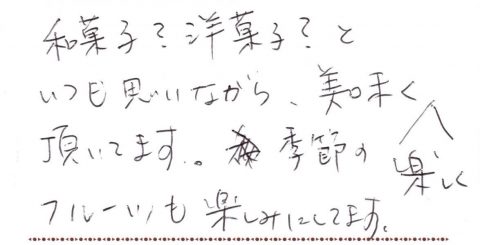 和菓子？洋菓子？と
いつも思いながら、美味く
楽しく
頂いてます。季節の
フルーツも楽しみにしてます。